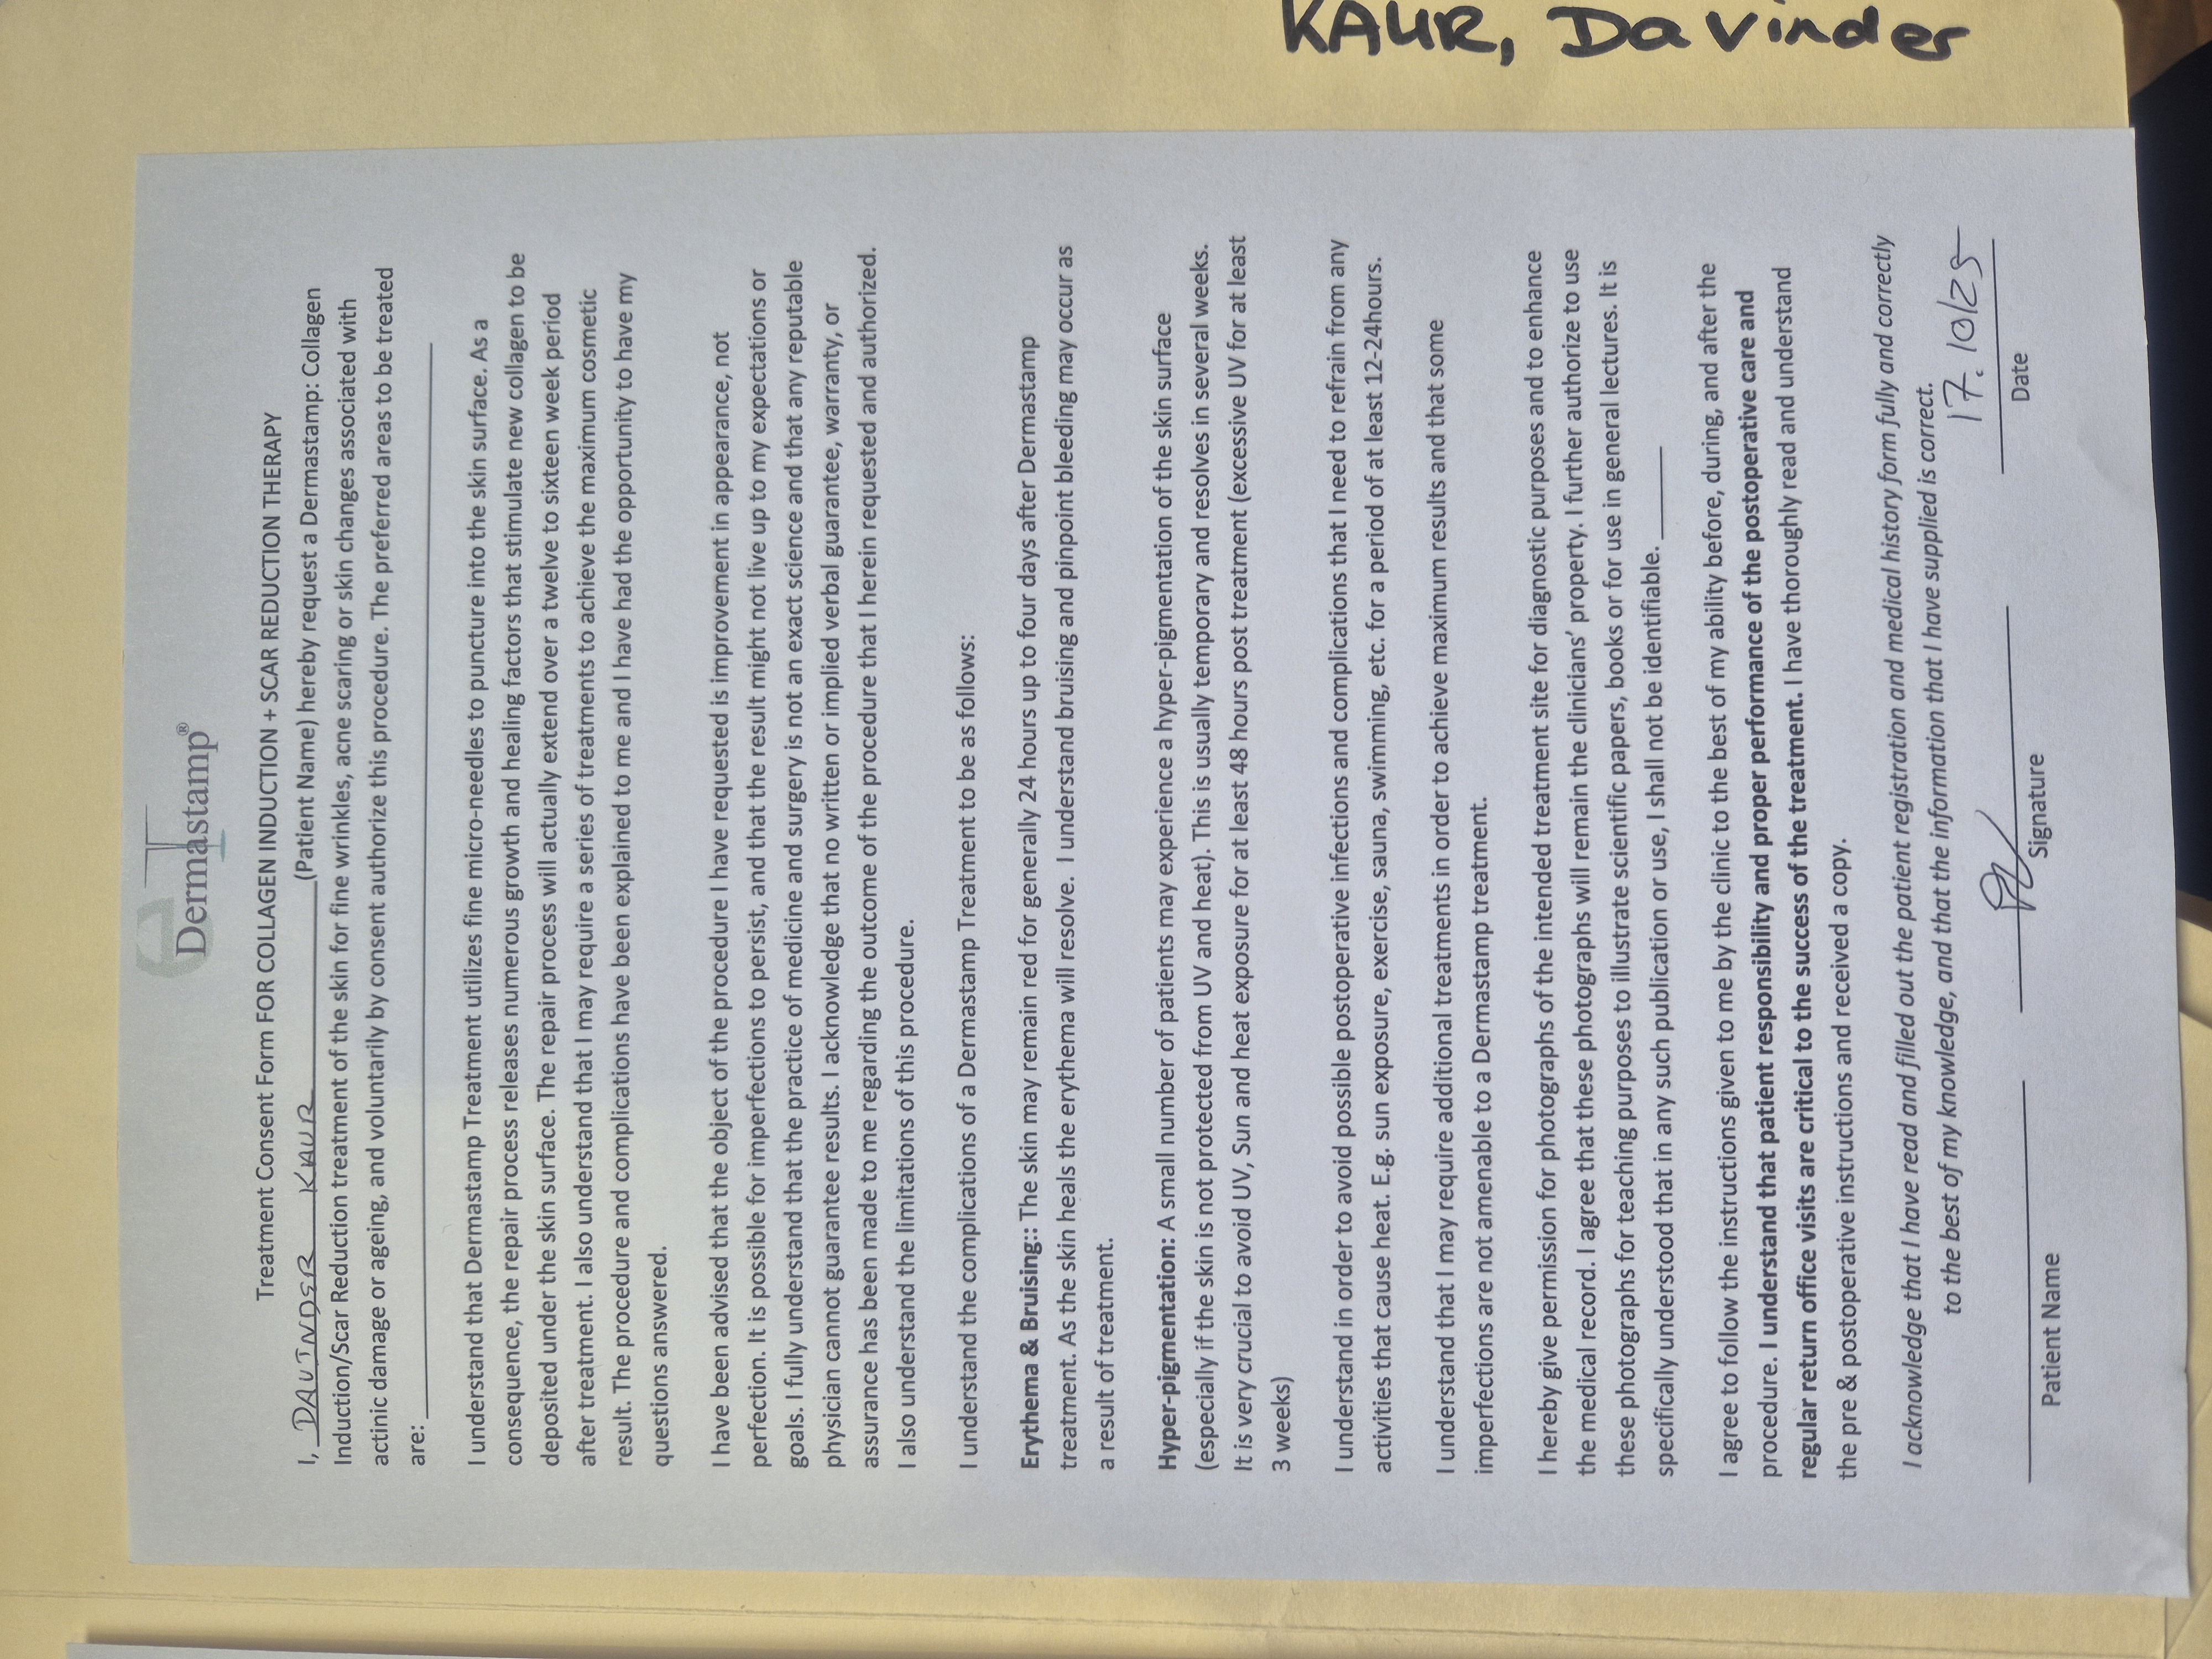 KAUR, Davinder
e
Dermastamp®
Treatment Consent Form FOR COLLAGEN INDUCTION + SCAR REDUCTION THERAPY
I, DAVINDER KAUR (Patient Name) hereby request a Dermastamp: Collagen
Induction/Scar Reduction treatment of the skin for fine wrinkles, acne scaring or skin changes associated with
actinic damage or ageing, and voluntarily by consent authorize this procedure. The preferred areas to be treated
are:
I understand that Dermastamp Treatment utilizes fine micro-needles to puncture into the skin surface. As a
consequence, the repair process releases numerous growth and healing factors that stimulate new collagen to be
deposited under the skin surface. The repair process will actually extend over a twelve to sixteen week period
after treatment. I also understand that I may require a series of treatments to achieve the maximum cosmetic
result. The procedure and complications have been explained to me and I have had the opportunity to have my
questions answered.
I have been advised that the object of the procedure I have requested is improvement in appearance, not
perfection. It is possible for imperfections to persist, and that the result might not live up to my expectations or
goals. I fully understand that the practice of medicine and surgery is not an exact science and that any reputable
physician cannot guarantee results. I acknowledge that no written or implied verbal guarantee, warranty, or
assurance has been made to me regarding the outcome of the procedure that I herein requested and authorized.
I also understand the limitations of this procedure.
I understand the complications of a Dermastamp Treatment to be as follows:
Erythema & Bruising:: The skin may remain red for generally 24 hours up to four days after Dermastamp
treatment. As the skin heals the erythema will resolve. I understand bruising and pinpoint bleeding may occur as
a result of treatment.
Hyper-pigmentation: A small number of patients may experience a hyper-pigmentation of the skin surface
(especially if the skin is not protected from UV and heat). This is usually temporary and resolves in several weeks.
It is very crucial to avoid UV, Sun and heat exposure for at least 48 hours post treatment (excessive UV for at least
3 weeks)
I understand in order to avoid possible postoperative infections and complications that I need to refrain from any
activities that cause heat. E.g. sun exposure, exercise, sauna, swimming, etc. for a period of at least 12-24hours.
I understand that I may require additional treatments in order to achieve maximum results and that some
imperfections are not amenable to a Dermastamp treatment.
I hereby give permission for photographs of the intended treatment site for diagnostic purposes and to enhance
the medical record. I agree that these photographs will remain the clinicians' property. I further authorize to use
these photographs for teaching purposes to illustrate scientific papers, books or for use in general lectures. It is
specifically understood that in any such publication or use, I shall not be identifiable.
I agree to follow the instructions given to me by the clinic to the best of my ability before, during, and after the
procedure. I understand that patient responsibility and proper performance of the postoperative care and
regular return office visits are critical to the success of the treatment. I have thoroughly read and understand
the pre & postoperative instructions and received a copy.
I acknowledge that I have read and filled out the patient registration and medical history form fully and correctly
to the best of my knowledge, and that the information that I have supplied is correct.
17.10/25
Patient Name Signature Date